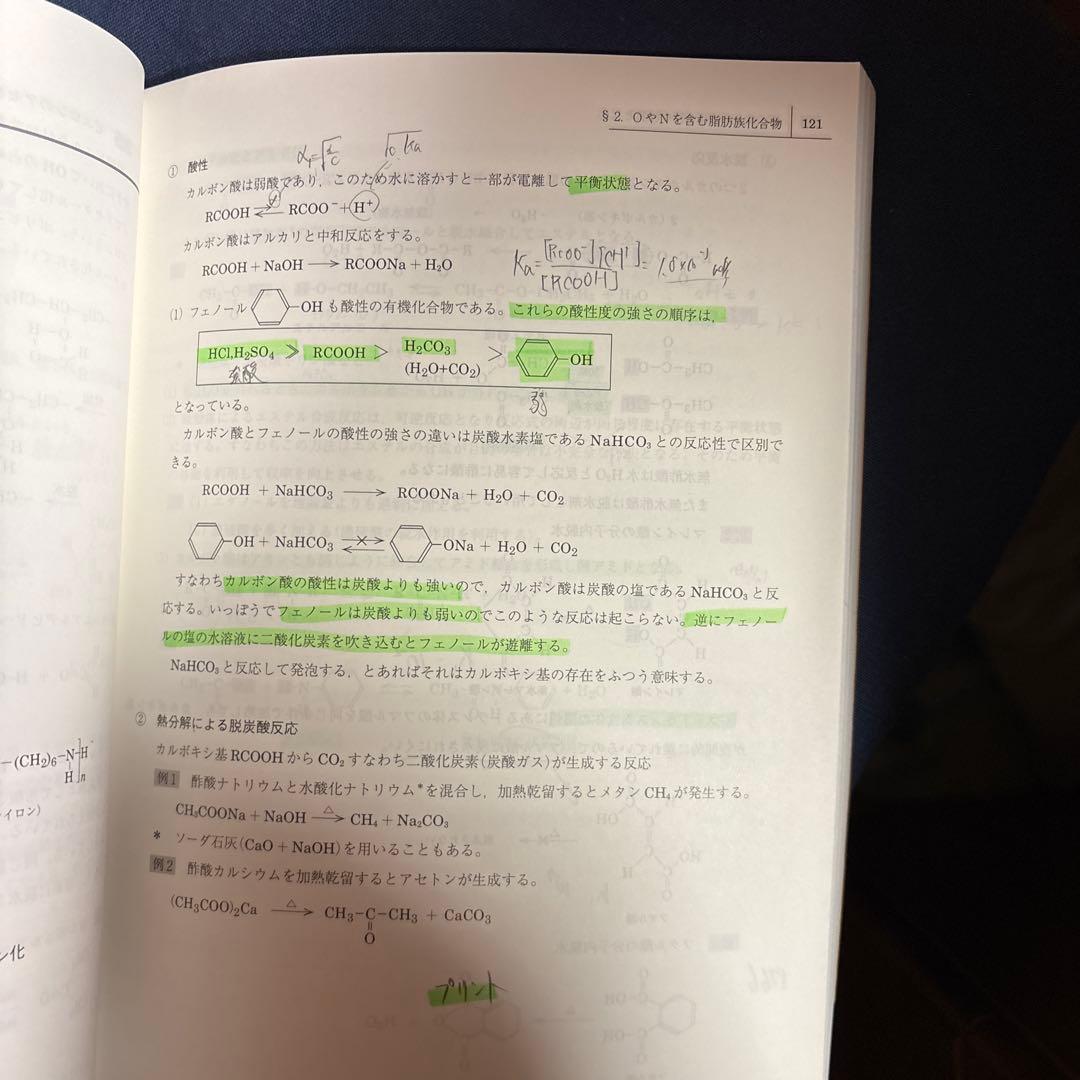 §2. OやNを含む脂肪族化合物 121
① 酸性
カルボン酸は弱酸であり，このため水に溶かすと一部が電離して平衡状態となる。
RCOOH ⇄ RCOO⁻+H⁺
カルボン酸はアルカリと中和反応をする。
RCOOH + NaOH ⟶ RCOONa + H₂O
Ka = [RCOO⁻][H⁺] / [RCOOH]
(1) フェノール -OH も酸性の有機化合物である。これらの酸性度の強さの順序は，
HCl,H₂SO₄ ≫ RCOOH > H₂CO₃ > -OH
(H₂O+CO₂)
強酸 弱
となっている。
カルボン酸とフェノールの酸性の強さの違いは炭酸水素塩であるNaHCO₃との反応性で区別で
きる。
RCOOH + NaHCO₃ ⟶ RCOONa + H₂O + CO₂
-OH + NaHCO₃ ⇄ -ONa + H₂O + CO₂
すなわちカルボン酸の酸性は炭酸よりも強いので，カルボン酸は炭酸の塩であるNaHCO₃と反
応する。いっぽうでフェノールは炭酸よりも弱いのでこのような反応は起こらない。逆にフェノー
ルの塩の水溶液に二酸化炭素を吹き込むとフェノールが遊離する。
NaHCO₃と反応して発泡する，とあればそれはカルボキシ基の存在をふつう意味する。
② 熱分解による脱炭酸反応
カルボキシ基RCOOHからCO₂すなわち二酸化炭素(炭酸ガス)が生成する反応
例1 酢酸ナトリウムと水酸化ナトリウム*を混合し，加熱乾留するとメタンCH₄が発生する。
CH₃COONa + NaOH △⟶ CH₄ + Na₂CO₃
* ソーダ石灰(CaO + NaOH)を用いることもある。
例2 酢酸カルシウムを加熱乾留するとアセトンが生成する。
(CH₃COO)₂Ca △⟶ CH₃-C-CH₃ + CaCO₃
O
プリント
-(CH₂)₆-N-H
H n
イロン)
ン化